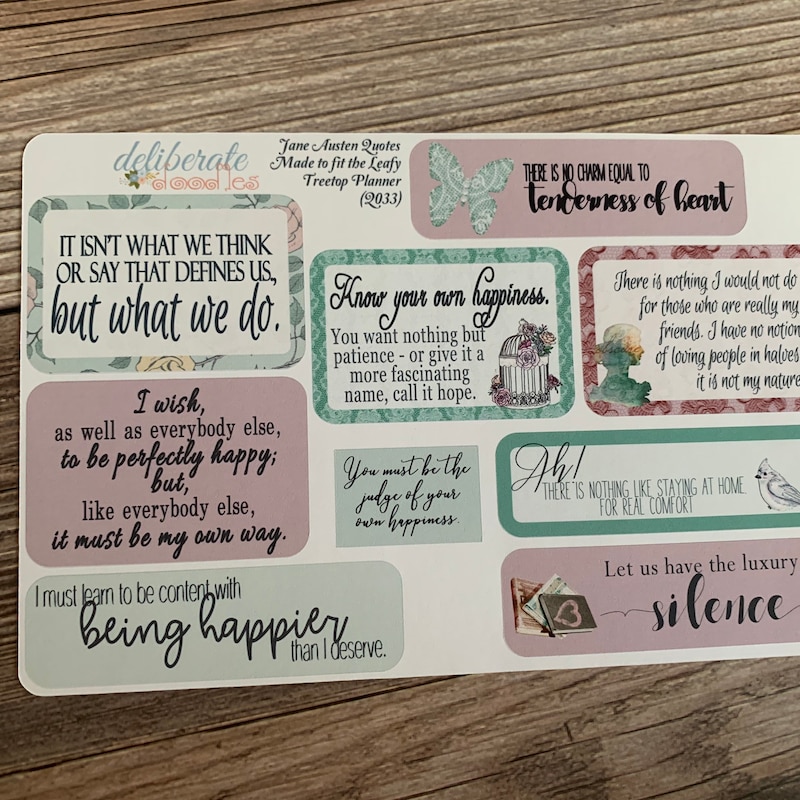 deliberate
doodles
Jane Austen Quotes
Made to fit the Leafy
Treetop Planner
(2033)
THERE IS NO CHARM EQUAL TO
tenderness of heart
IT ISN'T WHAT WE THINK
OR SAY THAT DEFINES US,
but what we do.
Know your own happiness.
You want nothing but
patience - or give it a
more fascinating
name, call it hope.
There is nothing I would not do
for those who are really my
friends. I have no notion
of loving people in halves
it is not my nature
I wish,
as well as everybody else,
to be perfectly happy;
but,
like everybody else,
it must be my own way.
You must be the
judge of your
own happiness.
Ah!
THERE IS NOTHING LIKE STAYING AT HOME
FOR REAL COMFORT
I must learn to be content with
being happier
than I deserve.
Let us have the luxury
silence